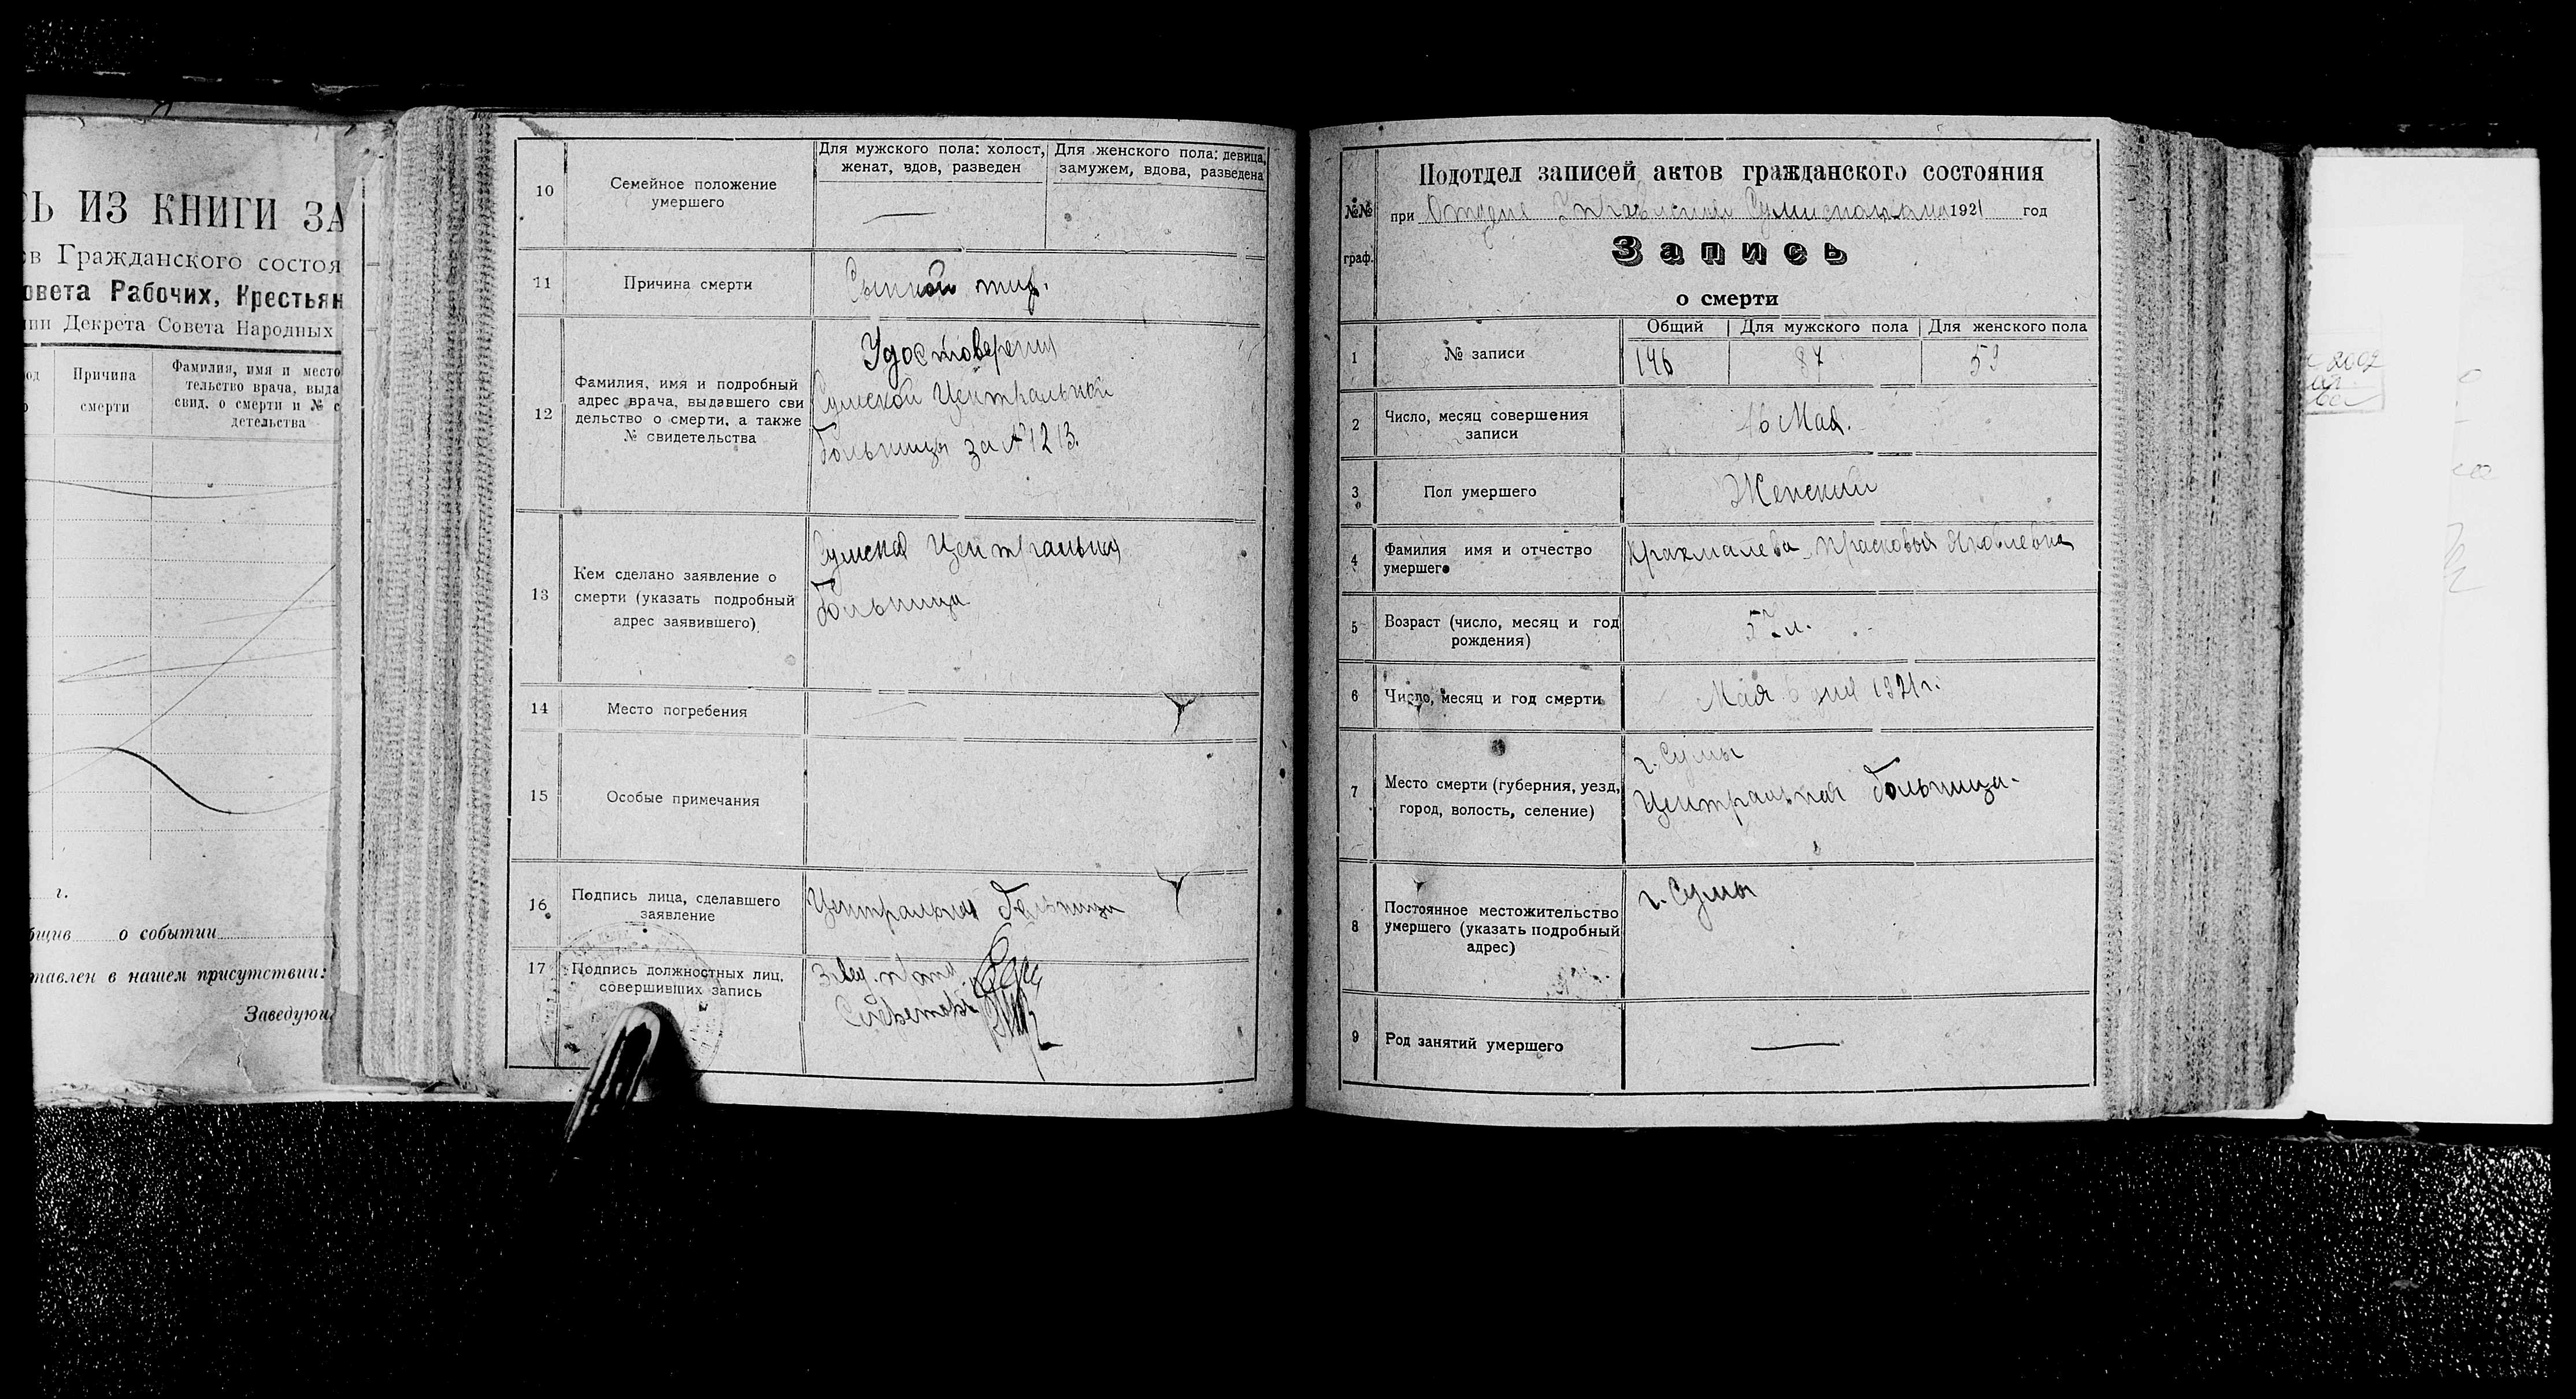 СЬ ИЗ КНИГИ ЗА
ов Гражданского состоя
овета Рабочих, Крестьян
нии Декрета Совета Народных
Причина
смерти
Фамилия, имя и место
тельство врача, выда
свид. о смерти и № с
детельства
г.
бщив о событии
тавлен в нашем присутствии:
Заведующ
10 Семейное положение
умершего
Для мужского пола: холост,
женат, вдов, разведен
Для женского пола: девица,
замужем, вдова, разведена
11 Причина смерти
Сыпной тиф.
12 Фамилия, имя и подробный
адрес врача, выдавшего сви
дельство о смерти, а также
№ свидетельства
Удостоверения
Сумской Центральной
больницы за № 1213.
13 Кем сделано заявление о
смерти (указать подробный
адрес заявившего)
Сумская Центральная
больница
14 Место погребения
15 Особые примечания
16 Подпись лица, сделавшего
заявление
Центральная больница
17 Подпись должностных лиц,
совершивших запись
Завед.
Секретарь
№№
граф.
Подотдел записей актов гражданского состояния
при Отделе Управления 1921 год
Запись
о смерти
1 № записи
Общий Для мужского пола Для женского пола
146 87 59
2 Число, месяц совершения
записи
16 Мая.
3 Пол умершего
Женский
4 Фамилия имя и отчество
умершего
Крахмалева Прасковья Яковлевна
5 Возраст (число, месяц и год
рождения)
57 л.
6 Число, месяц и год смерти
Мая 6 дня 1921 г.
7 Место смерти (губерния, уезд,
город, волость, селение)
г. Сумы
Центральная больница.
8 Постоянное местожительство
умершего (указать подробный
адрес)
г. Сумы
9 Род занятий умершего